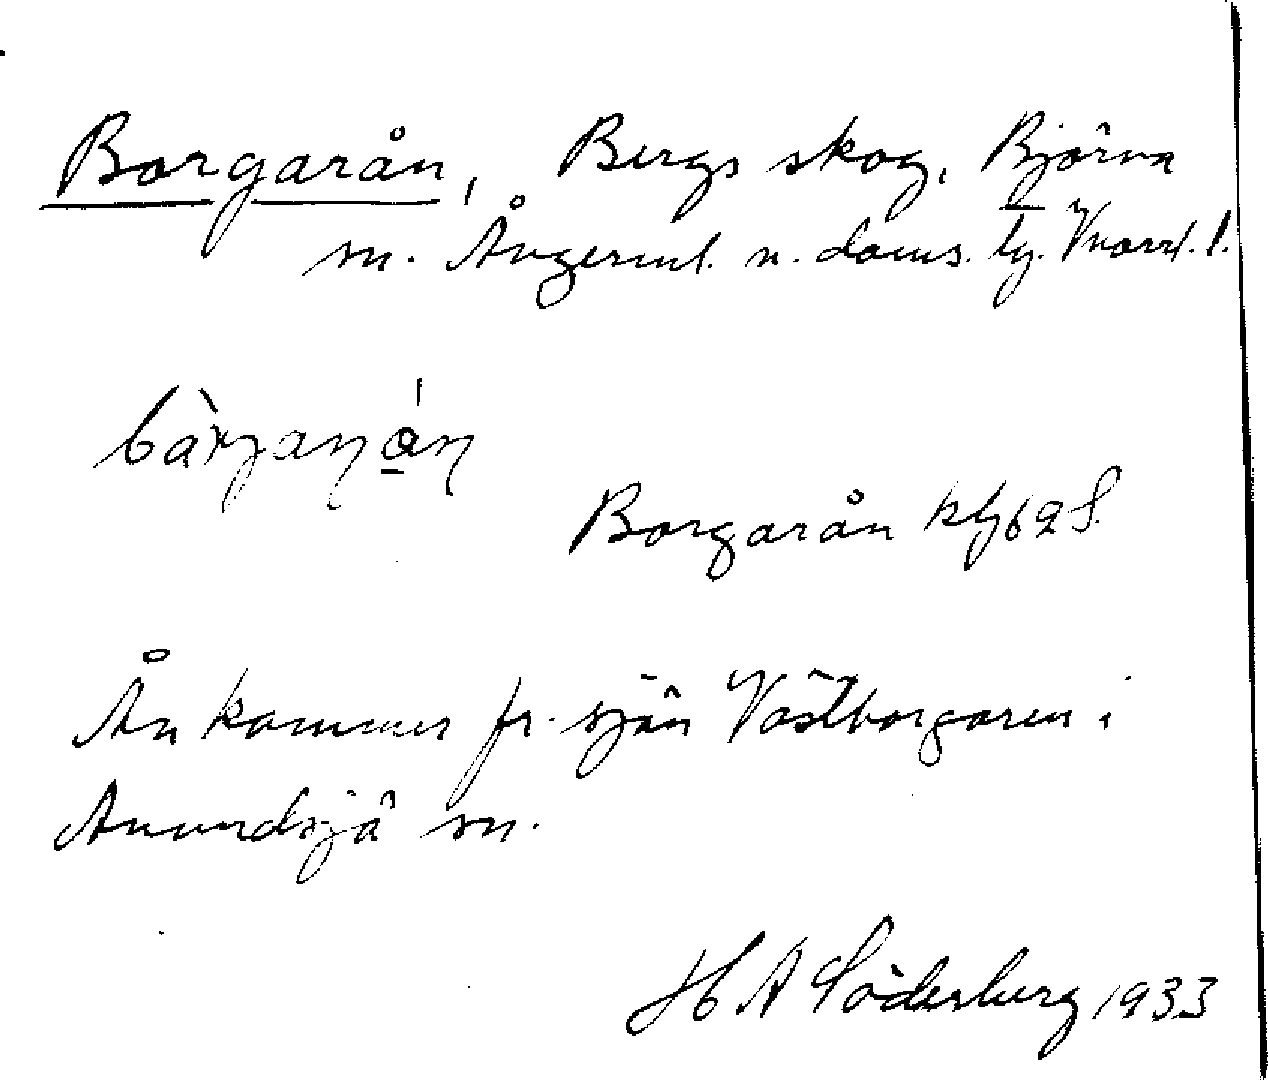 Borgarån, Bergs skog, Björna
sn. Ångerml. n. doms. lg. Vnorrl. l.
Borgarån kbl 62 S.
Ån kommer fr. sjön Västborgaren i
Anundsjö sn.
H A Söderberg 1933